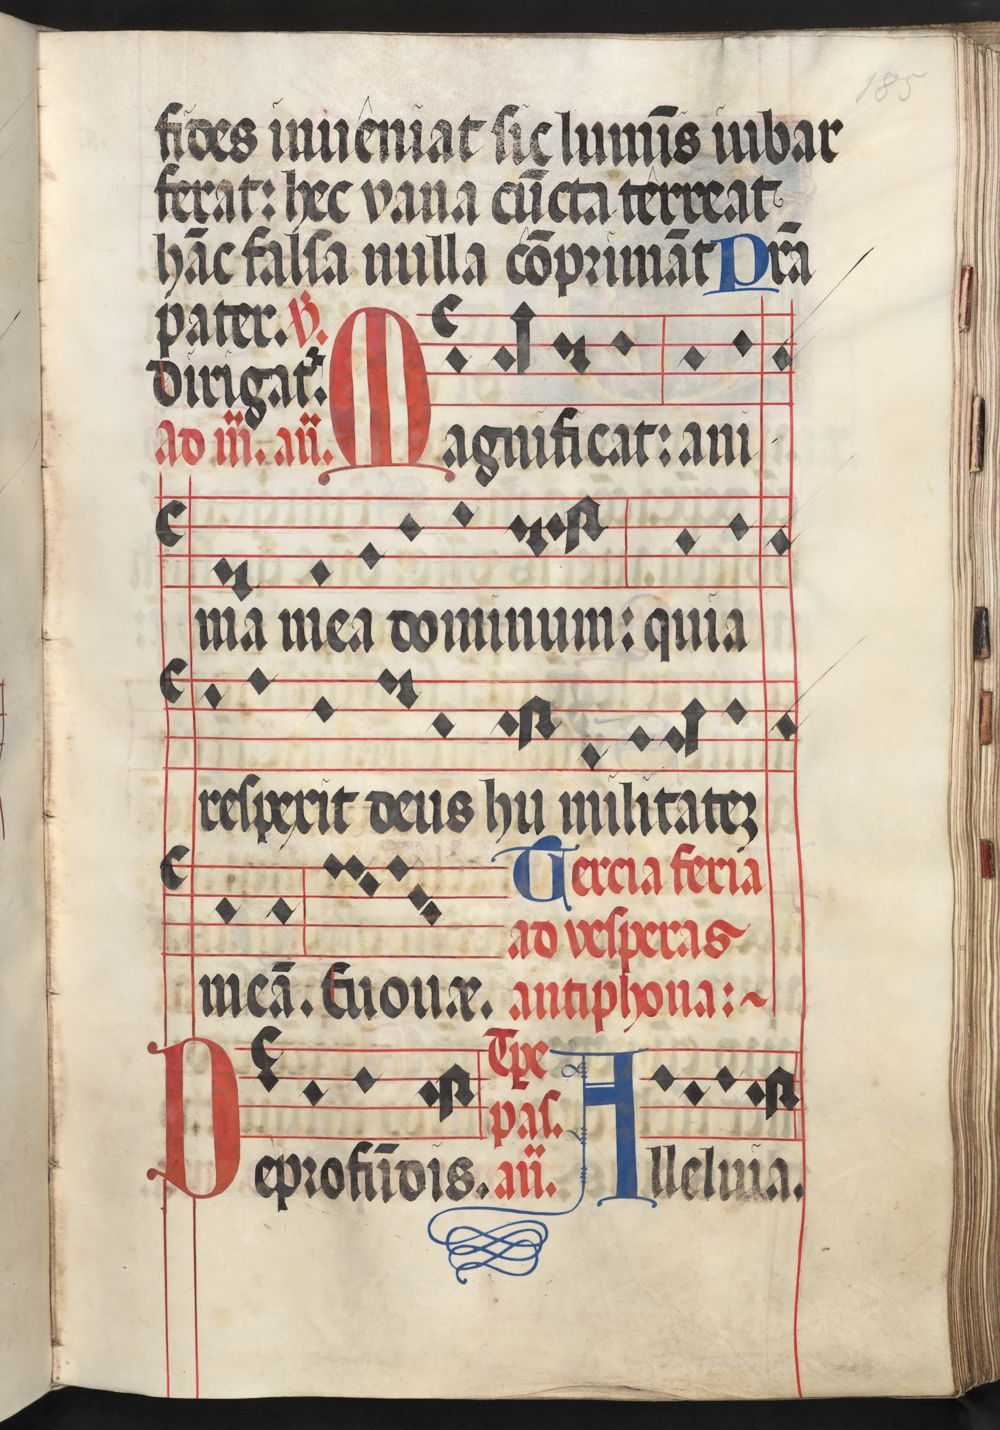 185
fides inueniat sic lumīs iubar
ferat: hec vana cūcta terreat
hāc falsa nulla cōprimāt Prā
pater. V.
Dirigat.
ad m̄. an̄.
Magnificat: ani
ma mea dominum: quia
resperit deus hu militateʒ
meā. Euouæ.
Tercia feria
ad vesperas
antiphona:~
Deprofūdis.
Tpe
pas.
an̄.
Alleluia.